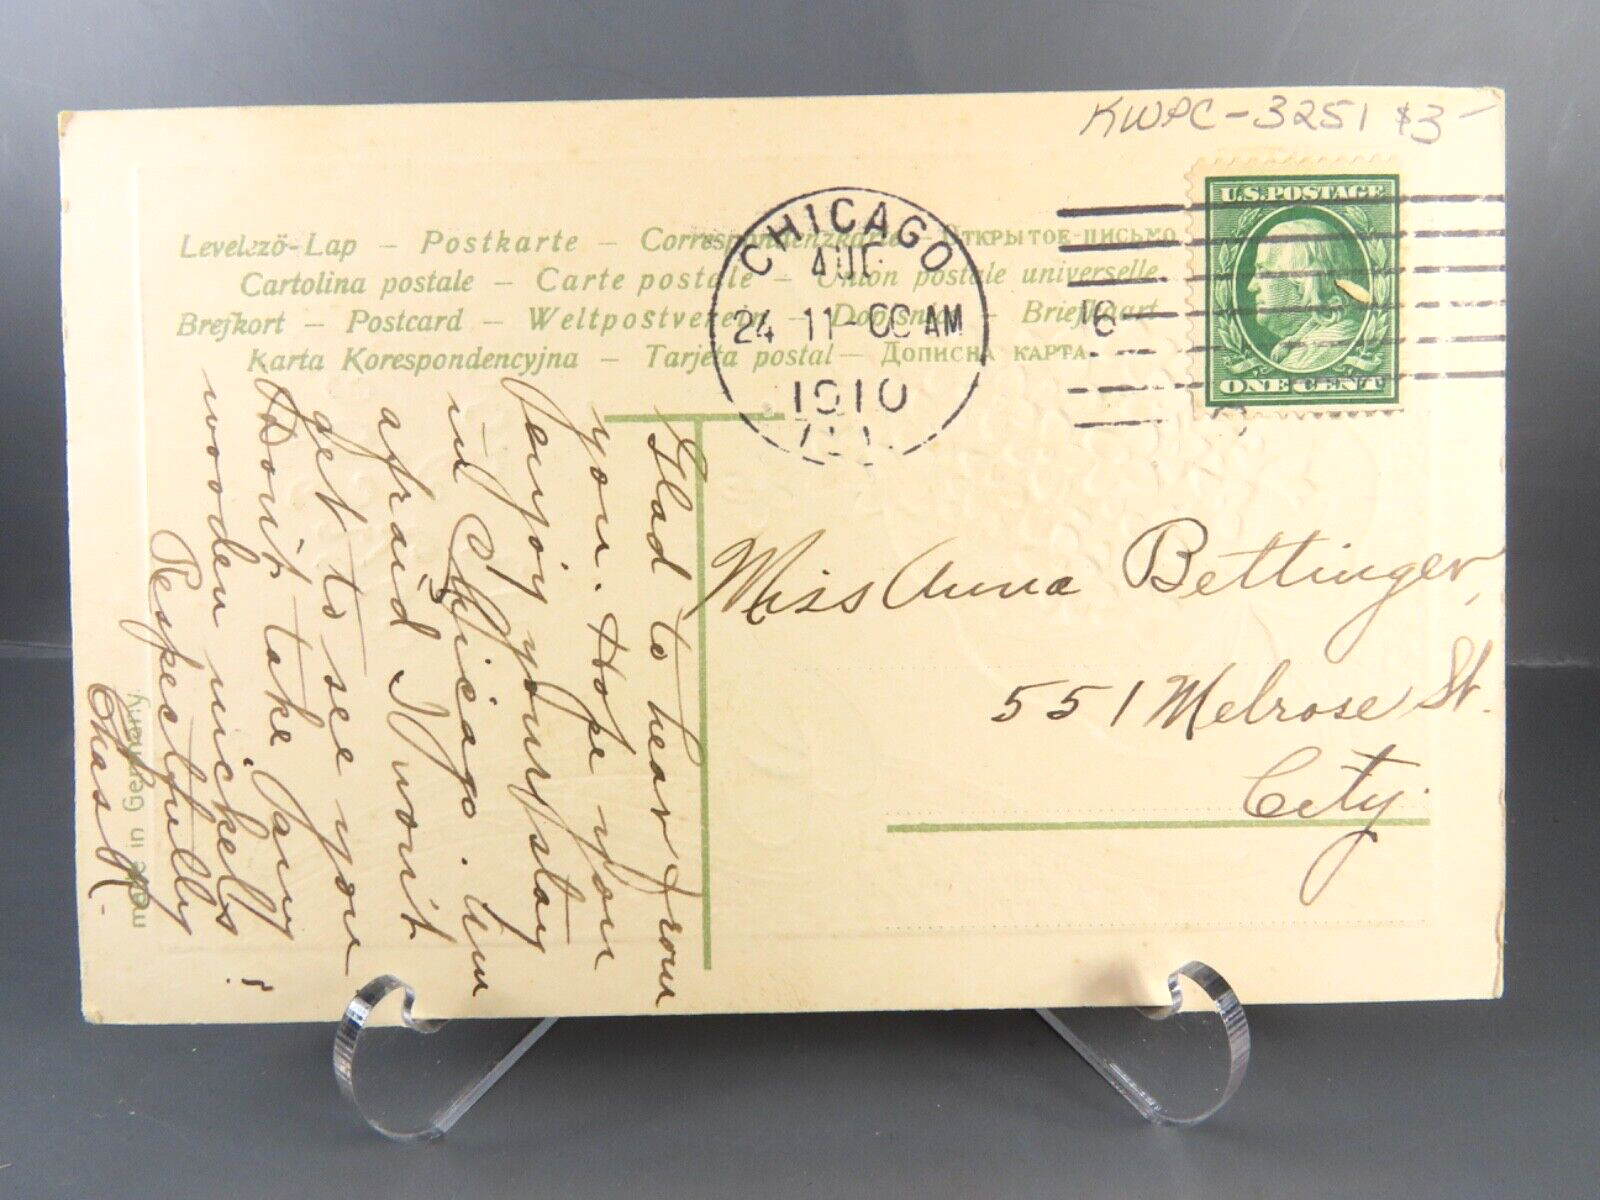 KWPC-3251 $3-
U.S. POSTAGE
ONE CENT
CHICAGO
AUG
24 11-00 AM
1910
ILL.
6
Levelező-Lap – Postkarte – Correspondenzkarte – Открытое письмо
Cartolina postale – Carte postale – Union postale universelle
Brefkort – Postcard – Weltpostverein – Dopisnice – Briefkaart
Karta Korespondencyjna – Tarjeta postal – Дописна карта
Miss Anna Bettinger,
551 Melrose St.
City.
Glad to hear from
you. Hope you
enjoy your stay
in Chicago. Am
afraid I won't
get to see you
Don't take any
wooden nickells!
Respectfully
Chas K.
made in Germany.